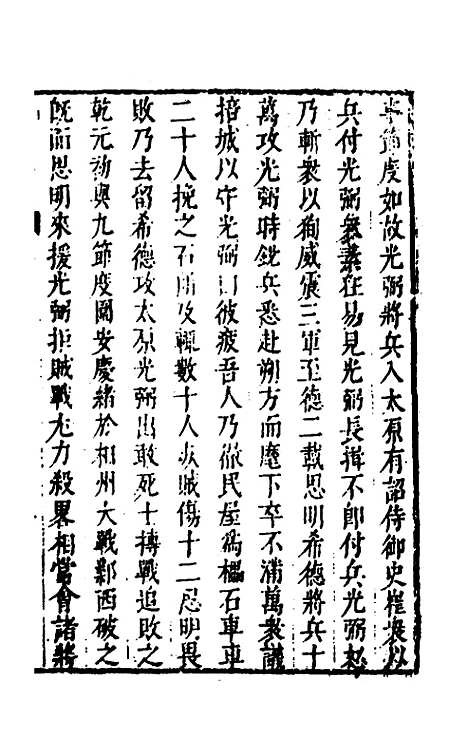 節度如故光弼將兵入太原有詔侍御史崔衆以
兵付光弼衆素狂易見光弼長揖不即付兵光弼怒
乃斬衆以狥威震三軍至德二載思明希德將兵十
萬攻光弼時銳兵悉赴朔方而麾下卒不滿萬衆議
培城以守光弼曰彼疲吾人乃徹民屋爲櫑石車車
二十人挽之石所及輒數十人死賊傷十二思明畏
敗乃去留希德攻太原光弼出敢死士搏戰追敗之
乾元初與九節度圍安慶緒於相州大戰鄴西破之
旣而思明來援光弼拒賊戰尤力殺畧相當會諸將